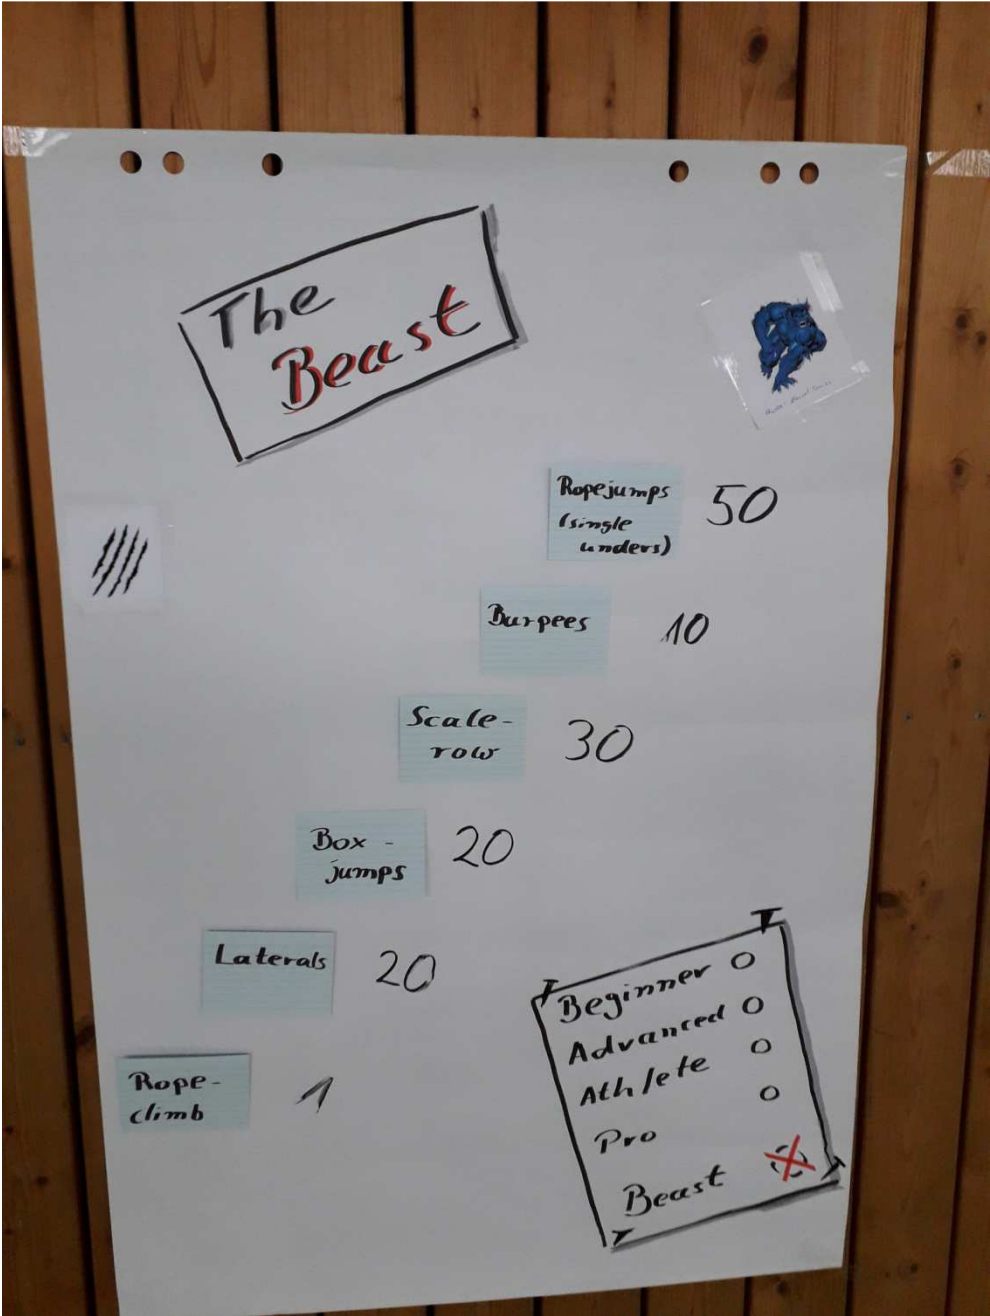 The
Beast
Ropejumps
(single
unders)
50
Burpees
10
Scale-
row
30
Box -
jumps
20
Laterals
20
Rope-
climb
1
Beginner
Advanced
Athlete
Pro
Beast